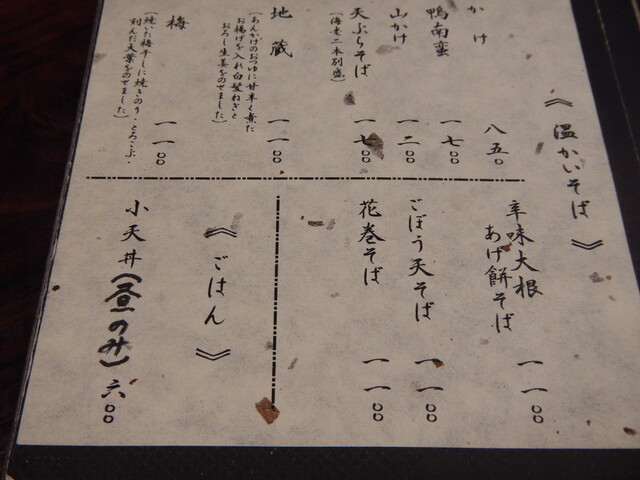 《温かいそば》
かけ
八五〇
鴨南蛮
一七〇〇
山かけ
一二〇〇
天ぷらそば
(海老二本別盛)
一七〇〇
地蔵
(あんかけのおつゆに甘辛く煮た
お揚げを入れ白髪ねぎと
おろし生姜をのせました)
一一〇〇
梅
(焼いた梅干しに焼きのり・とろろこぶ・
刻んだ大葉をのせました)
一一〇〇
辛味大根
あげ餅そば
一一〇〇
ごぼう天そば
一一〇〇
花巻そば
一一〇〇
《ごはん》
小天丼(昼のみ)六〇〇